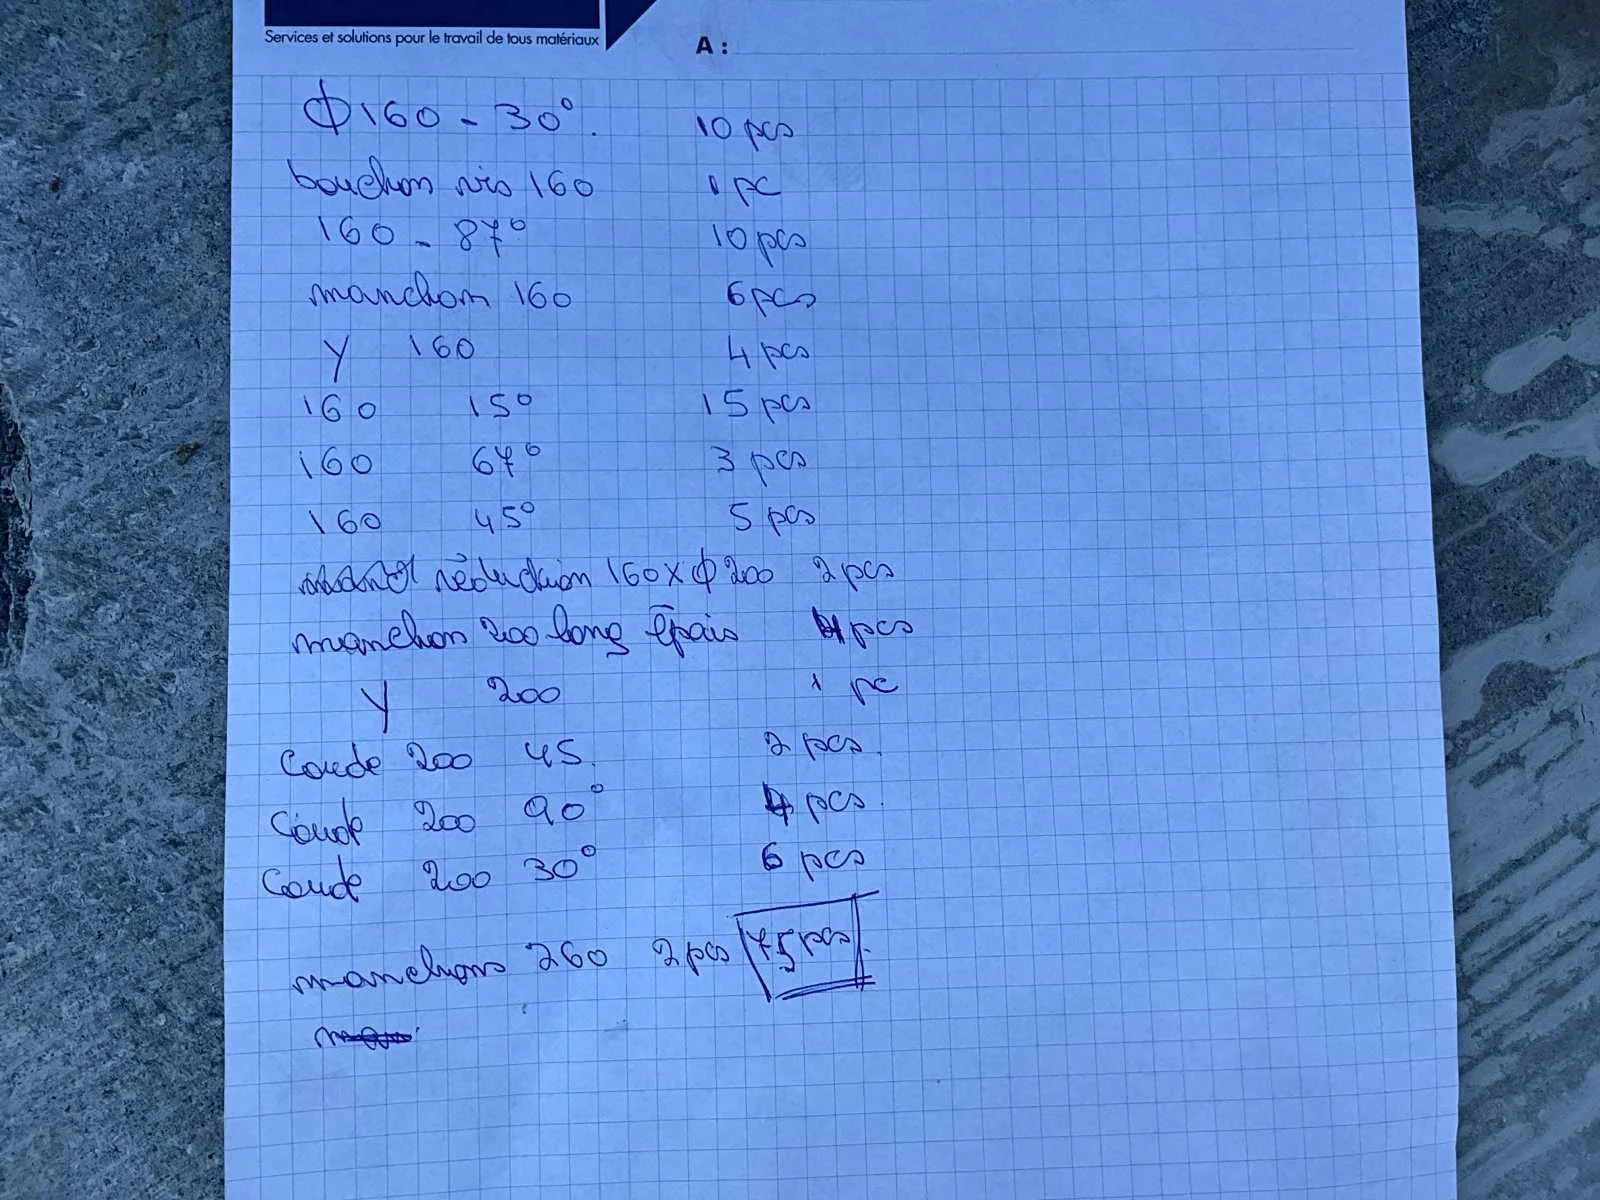 Services et solutions pour le travail de tous matériaux
A :
Φ160 - 30°. 10 pcs
bouchon vis 160 1 pc
160 - 87° 10 pcs
manchon 160 6 pcs
Y 160 4 pcs
160 15° 15 pcs
160 67° 3 pcs
160 45° 5 pcs
réduction 160 x Φ 200 2 pcs
manchon 200 long épais 4 pcs
Y 200 1 pc
Coude 200 45. 2 pcs.
Coude 200 90° 4 pcs.
Coude 200 30° 6 pcs
manchons 260 2 pcs 75 pcs.